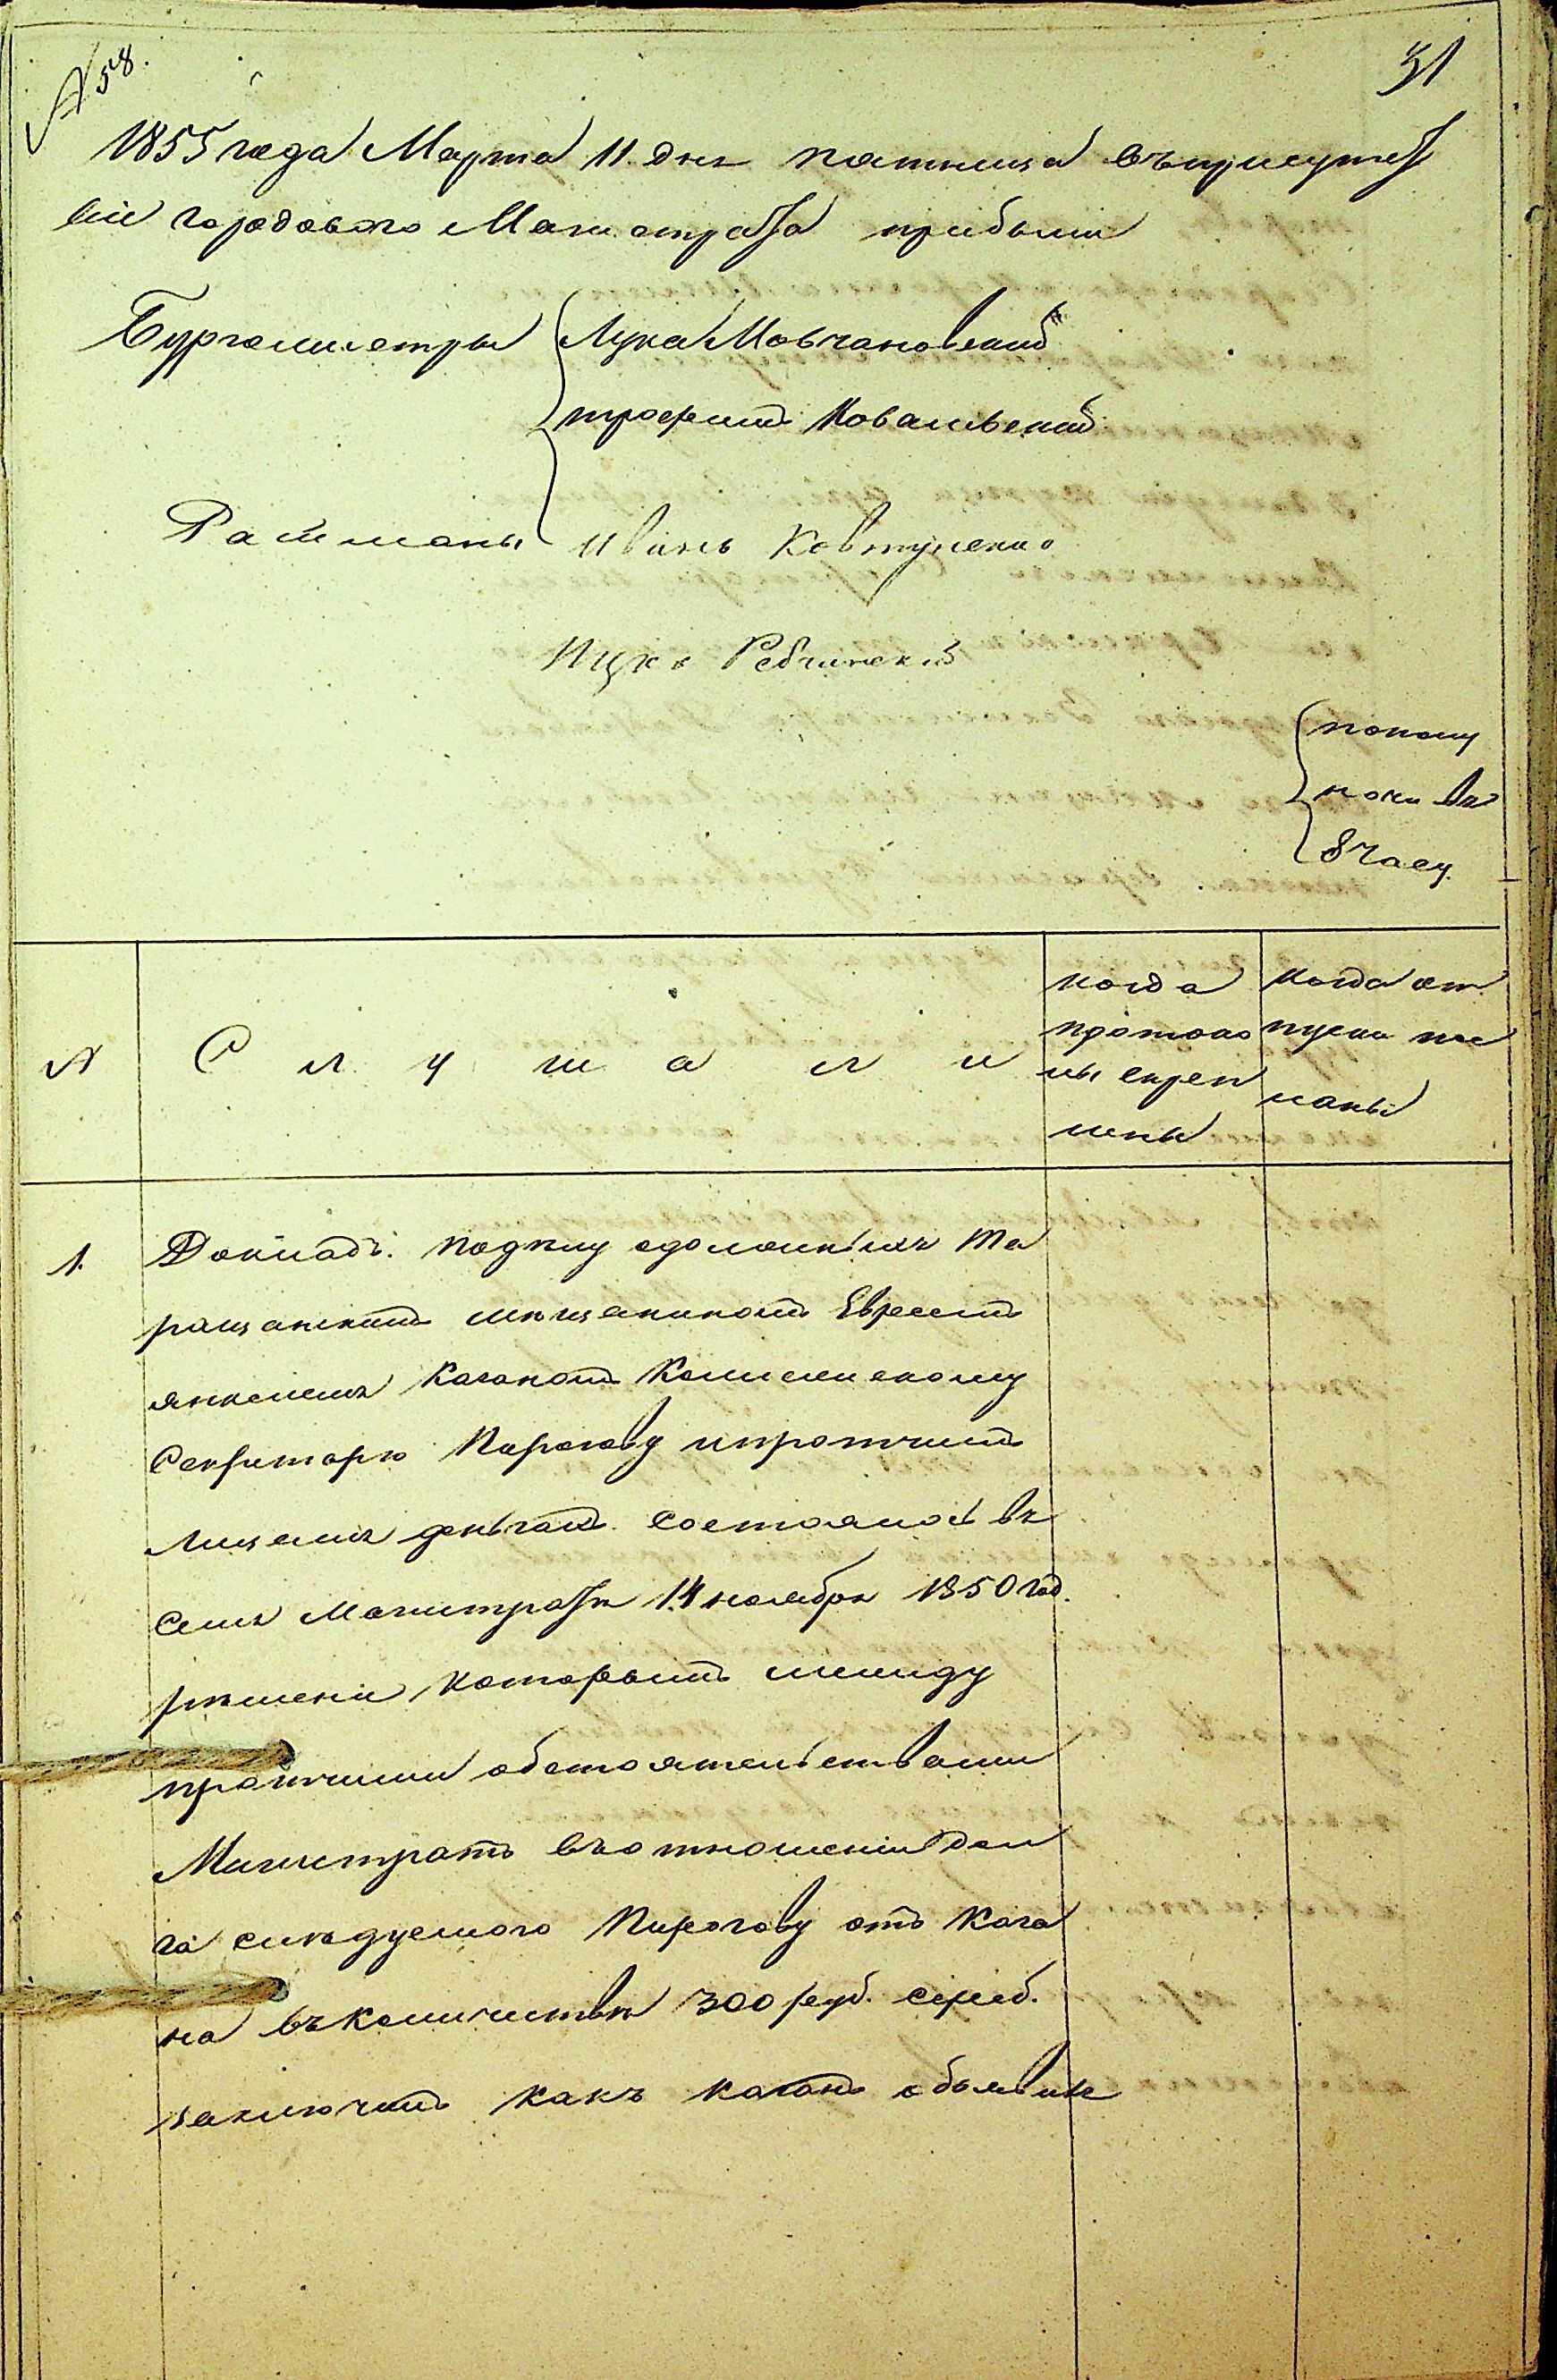 № 58.
31
1855 года Марта 11 дня пятница въ присутст
віи городового Магистрата прибыли
Бургомистры Лука Мовчановскій
трофимъ Ковальскій
Ратманы Иванъ Ковтуненко
Ицко Ребчинскій
пополу
ночи въ
8 часу.
№ Слушали
когда
протоко
лы скреп
лены
когда от
пуски пос
ланы
1. Докладъ. по делу о должныхъ Та
ращанскимъ мѣщаниномъ Евреемъ
янкелемъ Каганомъ Колежскому
Секритарю Пирогову и протчимъ
лицамъ деньгахъ. Состоялось въ
семъ Магистратѣ 14 ноября 1850 год.
рѣшеніе, которымъ между
протчими обстоятельствами
Магистратъ въ отношеніи дол
га следуемого Пирогову отъ Кага
на въ количествѣ 300 руб. сереб.
заключилъ какъ каганъ объявилъ